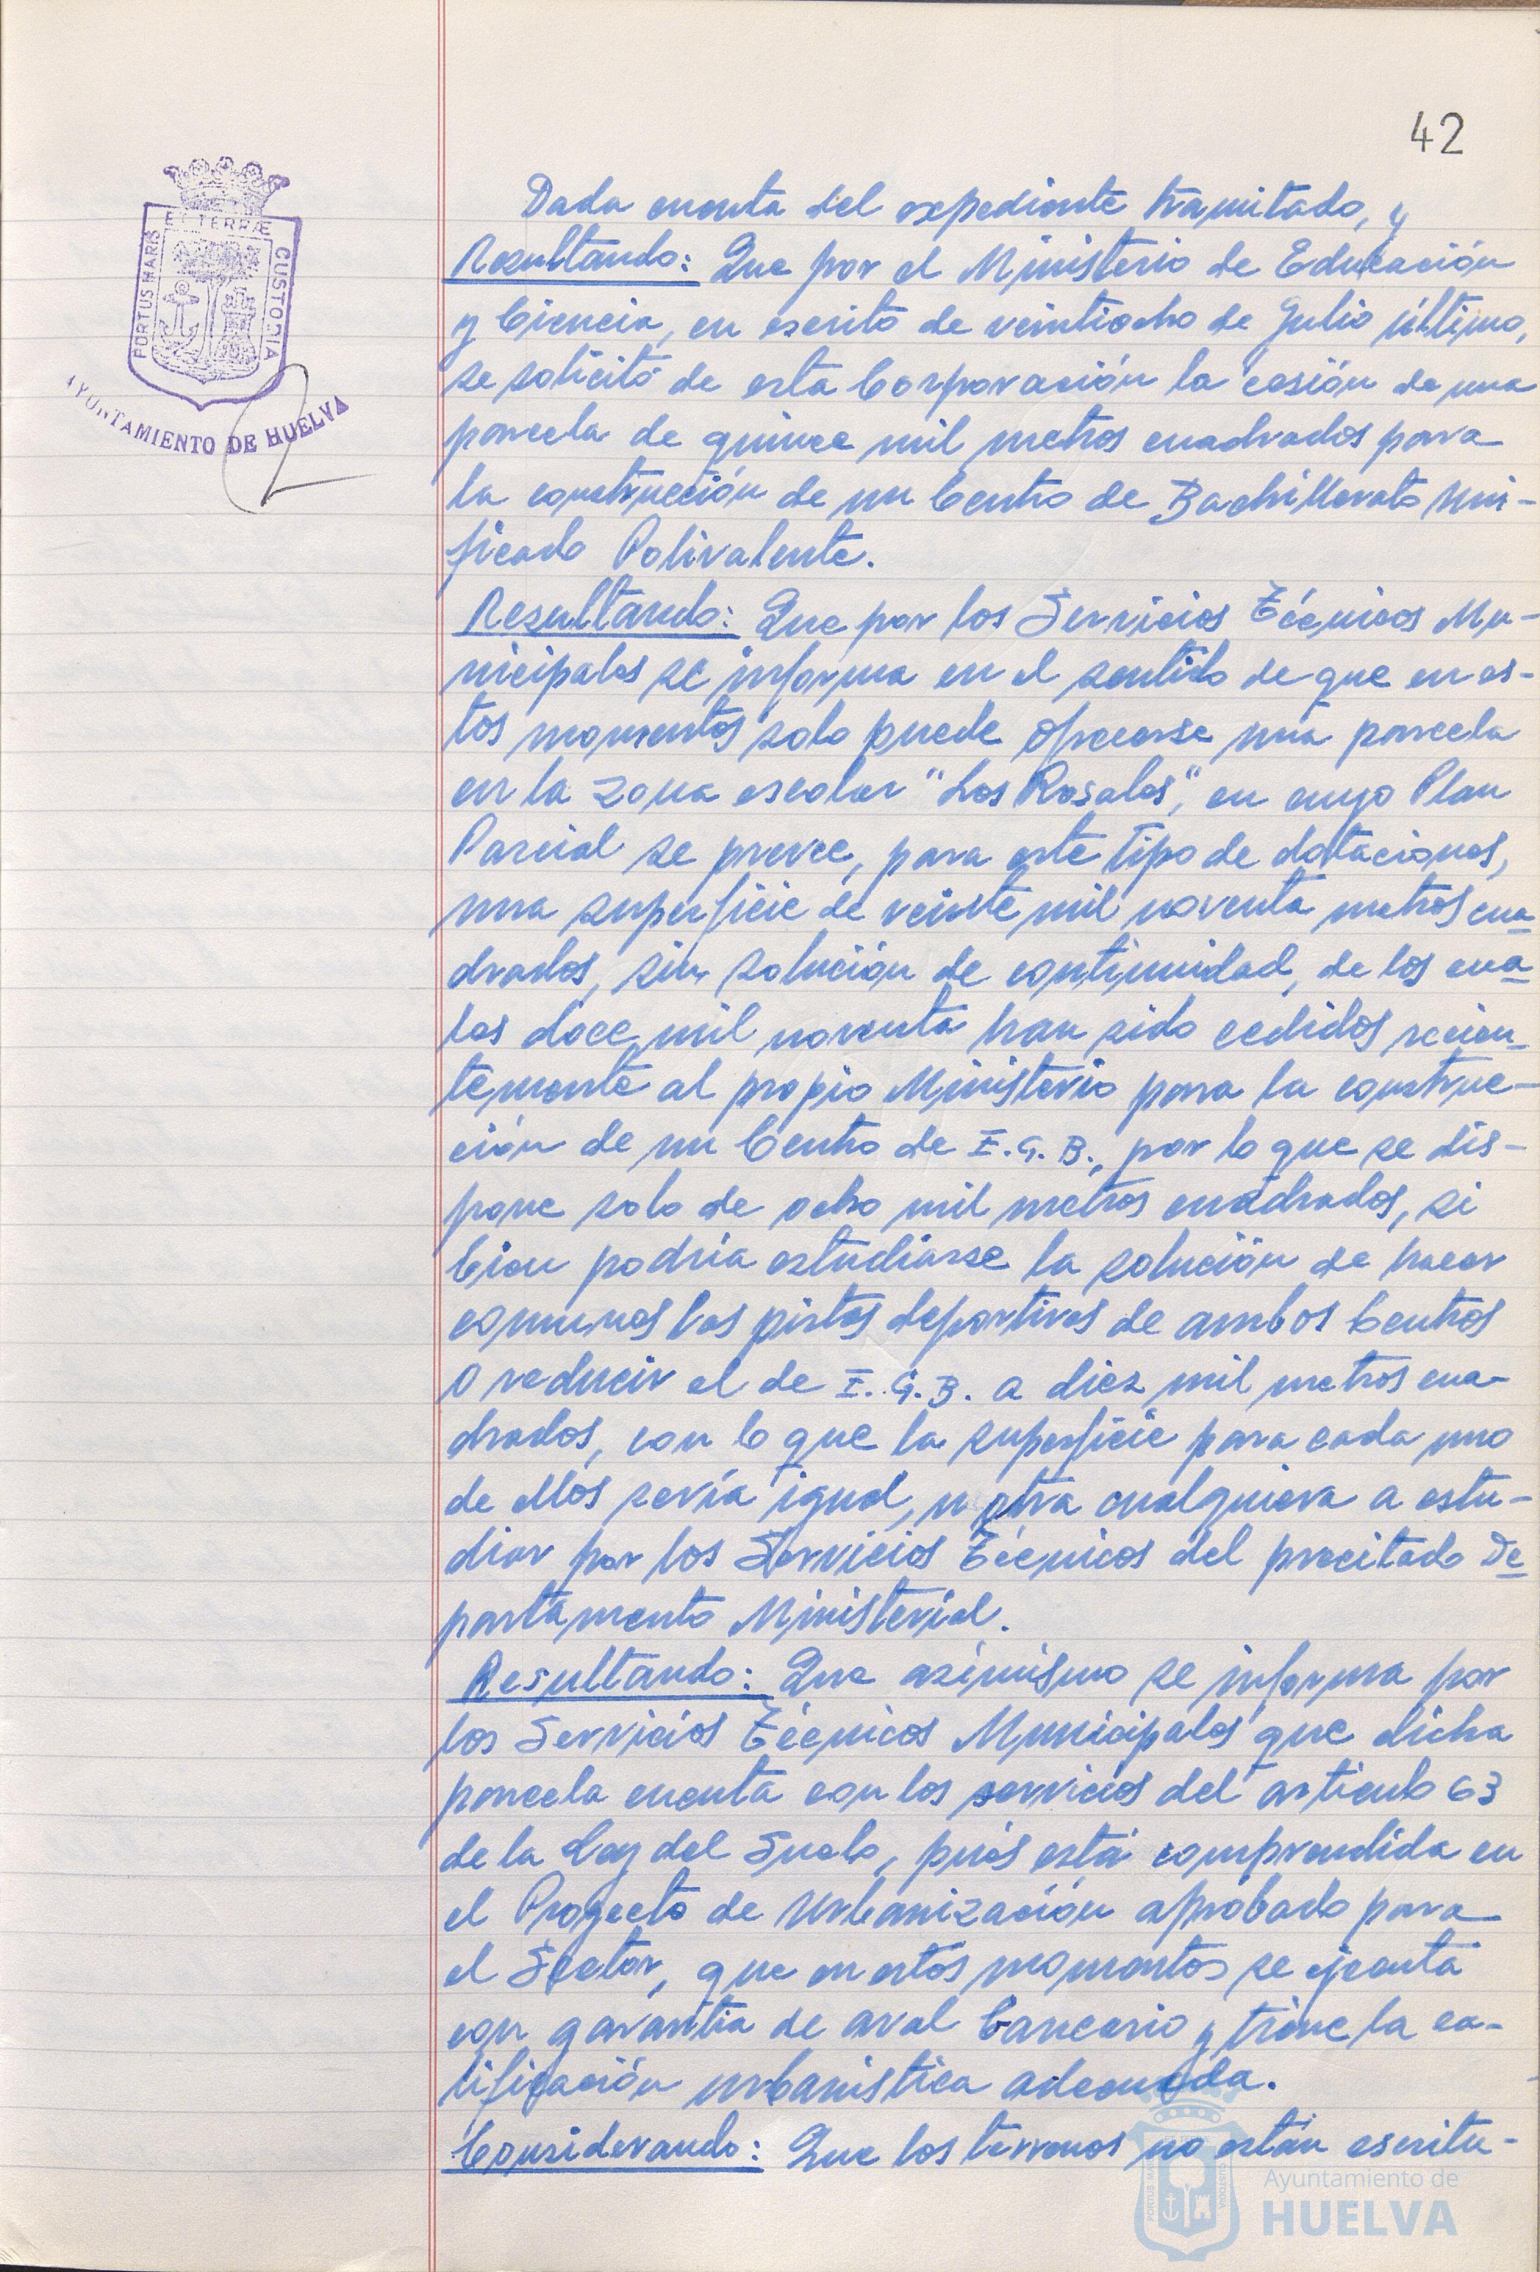 42
PORTUS MARIS ET TERRÆ CUSTODIA
AYUNTAMIENTO DE HUELVA
Dada cuenta del expediente tramitado, y
Resultando: Que por el Ministerio de Educación
y Ciencia, en escrito de veintiocho de Julio último,
se solicitó de esta Corporación la cesión de una
parcela de quince mil metros cuadrados para
la construcción de un Centro de Bachillerato Uni-
ficado Polivalente.
Resultando: Que por los Servicios Técnicos Mu-
nicipales se informa en el sentido de que en es-
tos momentos solo puede ofrecerse una parcela
en la zona escolar "Los Rosales", en cuyo Plan
Parcial se prevee, para este tipo de dotaciones,
una superficie de veinte mil noventa metros cua
drados, sin solución de continuidad, de los cua
les doce mil noventa han sido cedidos recien-
temente al propio Ministerio para la construc-
ción de un Centro de E.G.B., por lo que se dis-
pone solo de ocho mil metros cuadrados, si
bien podría estudiarse la solución de hacer
comunes las pistas deportivas de ambos Centros
o reducir el de E.G.B. a diez mil metros cua-
drados, con lo que la superficie para cada uno
de ellos sería igual, u otra cualquiera a estu-
diar por los Servicios Técnicos del precitado De
partamento Ministerial.
Resultando: Que asimismo se informa por
los Servicios Técnicos Municipales que dicha
parcela cuenta con los servicios del articulo 63
de la Ley del Suelo, pués está comprendida en
el Proyecto de Urbanización aprobado para
el Sector, que en estos momentos se ejecuta
con garantia de aval bancario y tiene la ca-
lificación urbanistica adecuada.
Considerando: Que los terrenos no están escritu-
Ayuntamiento de
HUELVA